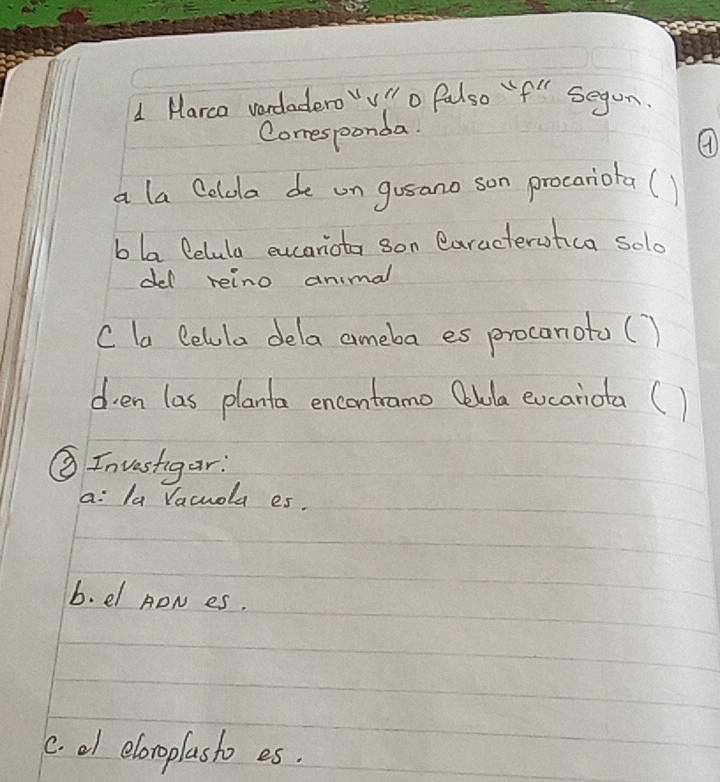 1 Marca verdadero "v" o falso "f" segun.
Corresponda.
a la Celula de un gusano son procariota ( )
b la Celula eucariota son Caracteristica solo
del reino animal
c la Celula dela ameba es procarioto ( )
d. en las planta encontramo Celula eucariota ( )
② Investigar:
a: la Vacuola es.
b. el ADN es.
c. el cloroplasto es.
①